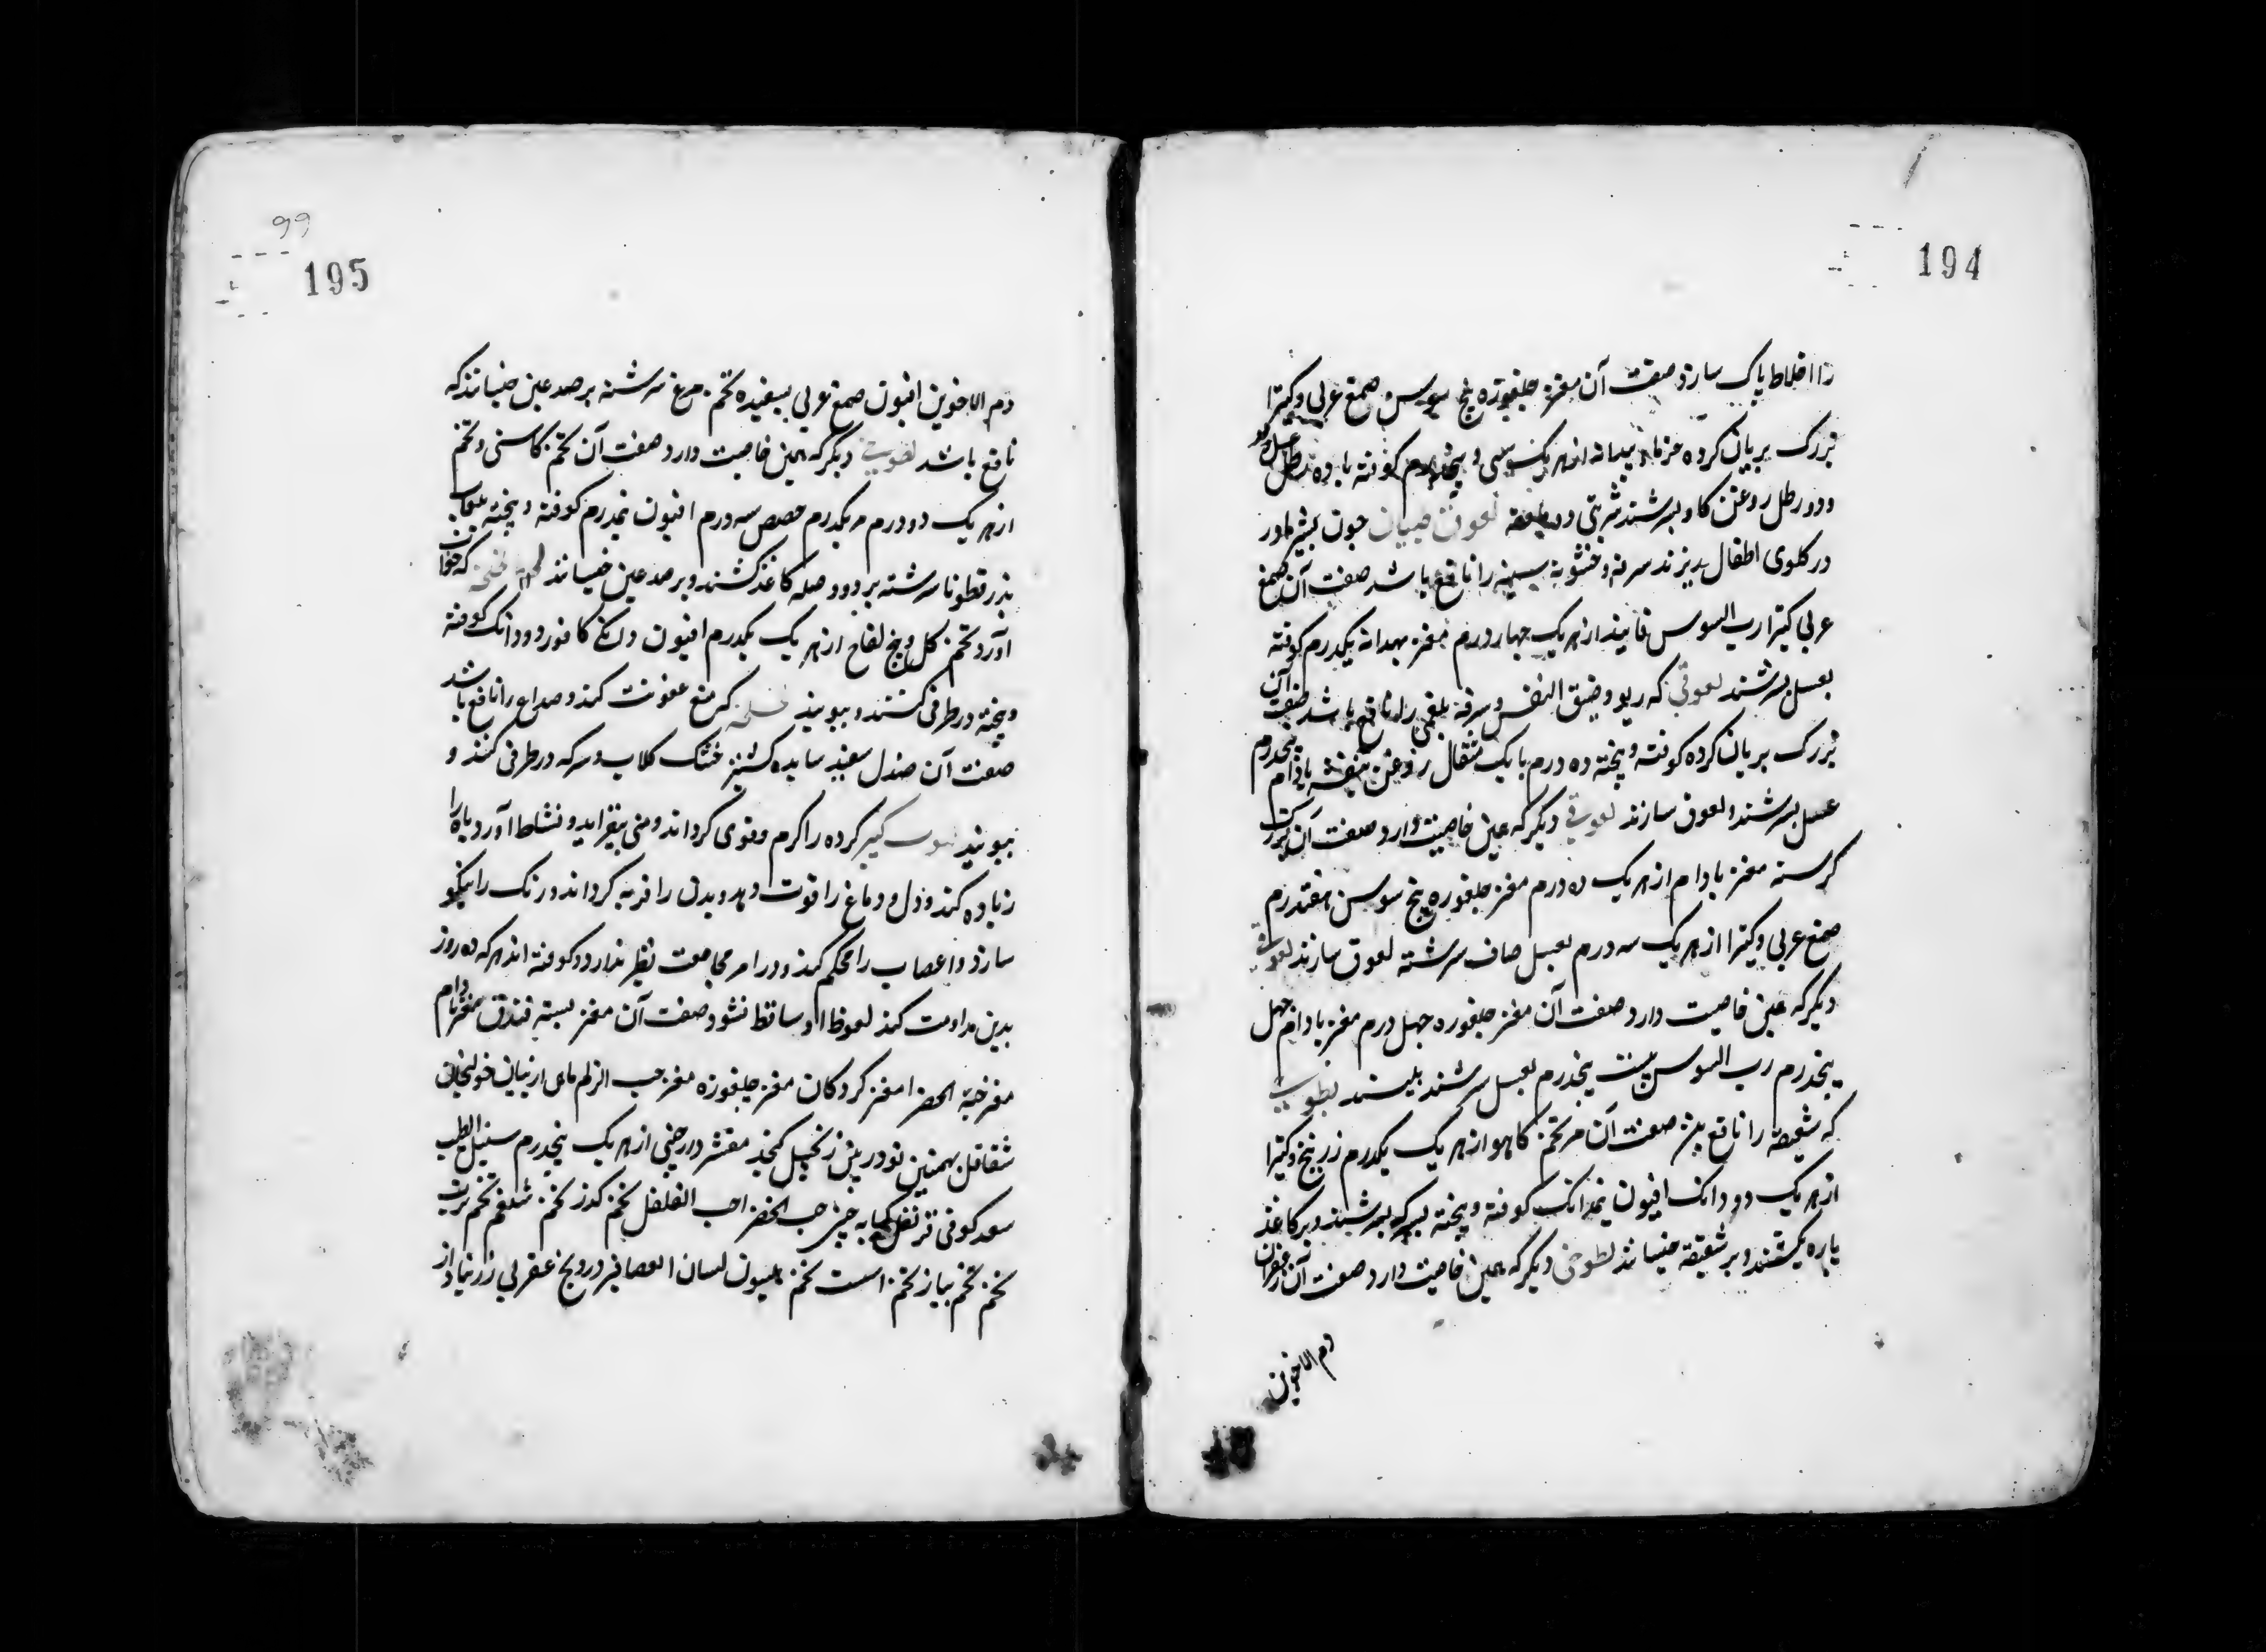 194
را اخلاط پاک سازد صفت آن مغز جلغوزه بیخ سوس صمغ عربی و کتیرا
بزرک بریان کرده خرما بیدانه از هر یک سی و پنجدرم کوفته با ده رطل عسل
و دو رطل روغن کاو بسرشند شربتی دو ملعقه لعوق صبیان چون بشیر مادر
در کلوی اطفال بریزند سرفه و خشونة سینه را نافع باشد صفت آن صمغ
عربی کتیرا رب السوس فانیذ از هر یک چهار درم مغز بهدانه یکدرم کوفته
بعسل بسرشند لعوقی که ربو و ضیق النفس و سرفه بلغمی را نافع باشد صفت آن
بزرک بریان کرده کوفته و پخته ده درم با یک مثقال روغن بنفشه بادام پنجدرم
عسل بسرشند و لعوق سازند لعوقی دیکر که همین خاصیت دارد صفت آن بزرک
کرسنه مغز بادام از هر یک ده درم مغز جلغوزه بیخ سوسن هفتدرم
صمغ عربی و کتیرا از هر یک سه درم بعسل صاف سرشته لعوق سازند لعوقی
دیکر که همین خاصیت دارد صفت آن مغز جلغوزه چهل درم مغز بادام چهل
پنجدرم رب السوس بیست پنجدرم بعسل سرشند بلیسند لطوخی
که شقیقه را نافع بود صفت آن مر تخم کاهو از هر یک یکدرم زرنیخ و کتیرا
از هر یک دو دانک افیون نیمدانک کوفته و پخته بسرکه بسرشند و بر کاغذ
پاره کشند و بر شقیقه چسپانند لطوخی دیکر که همین خاصیت دارد صفت آن زعفران
دم الاخوین
99
195
دم الاخوین افیون صمغ عربی بسفیده تخم مرغ سرشته بر صدغین چسپانند که
نافع باشد لطوخی دیکر که همین خاصیت دارد صفت آن تخم کاسنی و تخم
از هر یک دو درم مر یکدرم حضض سه درم افیون نیمدرم کوفته و پخته بلعاب
بذر قطونا سرشته بر دو وصله کاغذ کشند و بر صدغین چسپانند لخلخه که خواب
آورد تخم کل و بیخ لفاح از هر یک یکدرم افیون دانکی کافور دو دانک کوفته
و پخته در ظرفی کنند و ببویند لخلخه که منع عفونت کند و صداع را نافع باشد
صفت آن صندل سفید ساییده کشنیز خشک کلاب و سرکه در ظرفی کنند و
ببویند لبوب کبیر کرده را کرم و قوی کرداند و منی بیفزاید و نشاط آورد باه را
زیاده کند و دل و دماغ را قوت دهد و بدن را فربه کرداند و رنک را نیکو
سازد و اعصاب را محکم کند و در امر مجامعت نظیر ندارد و کوفته اند هر که ده روز
بدین مداومت کند لعوظ او ساقط نشود صفت آن مغز پسته فندق مغز بادام
مغز حبة الخضرا مغز کردکان مغز جلغوزه مغز حب الزلم ماهی ازبیان خولنجان
شقاقل بهمنین تودریین زنجبیل کنجد مقشر دارچینی از هر یک پنجدرم سنبل الطیب
سعد کوفی قرنفل کبابه چینی حب الخضرا حب الفلفل تخم کذر تخم شلغم تخم ترب
تخم تخم پیاز تخم است تخم هلیون لسان العصافیر درونج عقربی زرنباد از